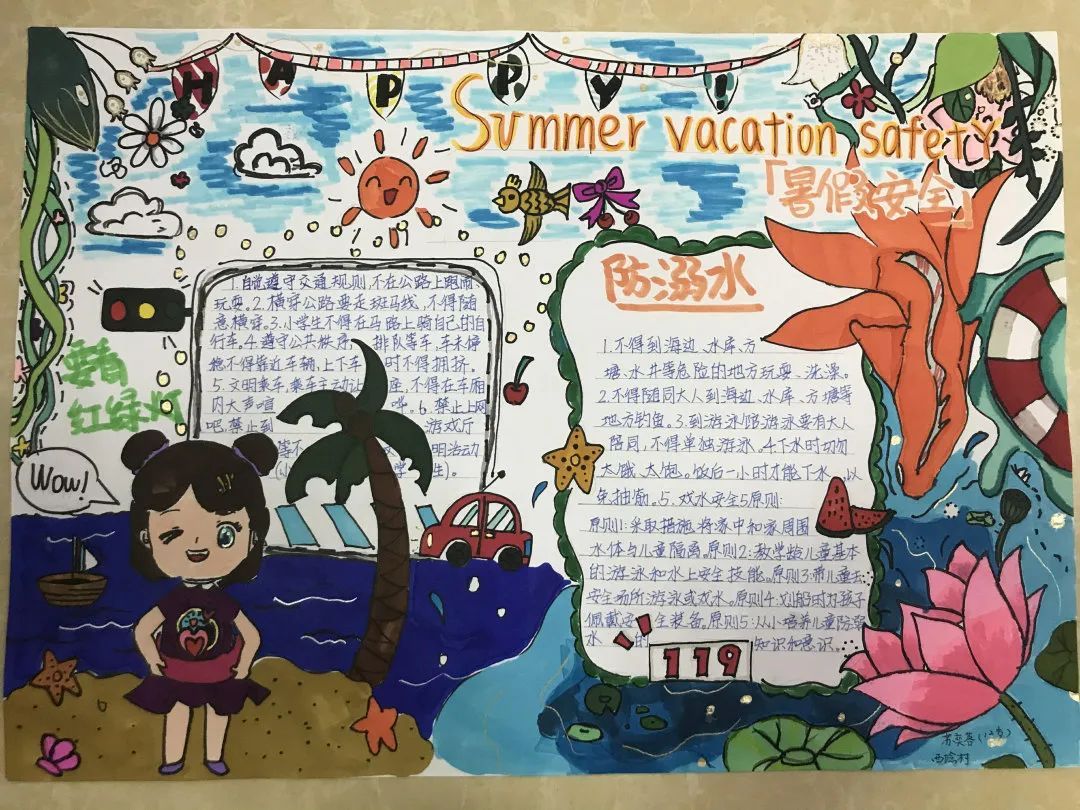 HAPPY!
Summer vacation safety
「暑假安全」
要看
红绿灯
Wow!
1.自觉遵守交通规则,不在公路上跑闹
玩耍。2.横穿公路要走斑马线,不得随
意横穿。3.小学生不得在马路上骑自己的自
行车。4.遵守公共秩序, 排队等车,车未停
稳不得靠近车辆,上下车 时不得拥挤。
5.文明乘车,乘车主动让 座,不得在车厢
内大声喧 哗。6.禁止上网
吧,禁止到 游戏厅
等不 明活动
(小 学 生)。
防溺水
1.不得到海边、水库、方
塘、水井等危险的地方玩耍、洗澡。
2.不得随同大人到海边、水库、方塘等
地方钓鱼。3.到游泳馆游泳要有大人
陪同,不得单独游泳。4.下水时切勿
太饿、太饱。饭后一小时才能下水,以
免抽筋。5.戏水安全5原则:
原则1:采取措施,将家中和家周围
水体与儿童隔离。原则2:教学始儿童基本
的游泳和水上安全技能。原则3:带儿童去
安全场所游泳或戏水。原则4:划船时为孩子
佩戴 生装备。原则5:从小培养儿童防溺
水 的 知识和意识。
119
(12岁)
村